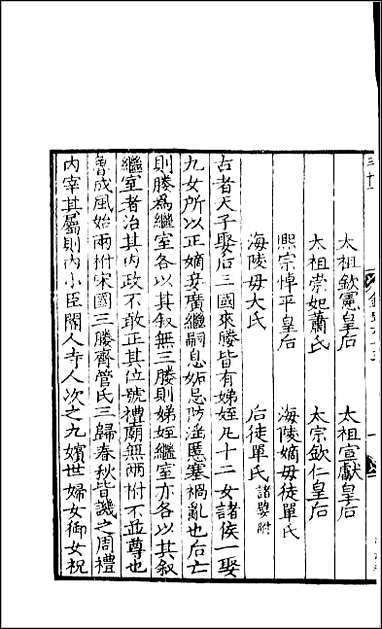 三十一
太祖欽憲皇后　太祖宣獻皇后
太祖崇妃蕭氏　太宗欽仁皇后
熙宗悼平皇后　海陵嫡母徒單氏
海陵母大氏　后徒單氏 諸嬖附
古者天子娶后三國來媵皆有娣姪凡十二女諸侯一娶
九女所以正嫡妾廣繼嗣息妬忌防淫慝塞禍亂也后亡
則媵為繼室各以其叙無三媵則娣姪繼室亦各以其叙
繼室者治其内政不敢正其位號禮廟無兩祔不並尊也
魯成風始兩祔宋國三媵齊管氏三歸春秋皆譏之周禮
内宰其屬則内小臣閽人寺人次之九嬪世婦女御女祝